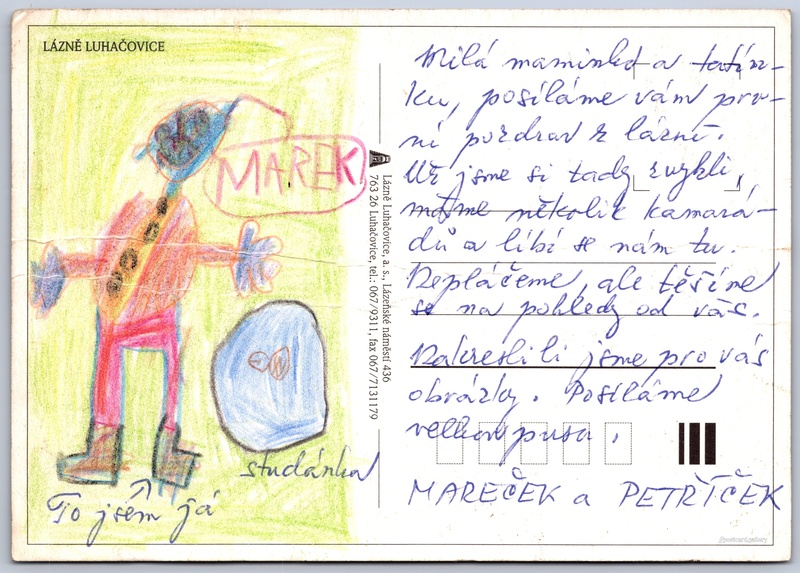 LÁZNĚ LUHAČOVICE
MAREK
studánka
To jsem já
Lázně Luhačovice, a. s., Lázeňské náměstí 436
763 26 Luhačovice, tel.: 067/9311, fax 067/7131179
Milá maminko a tatín-
ku, posíláme vám prv-
ní pozdrav z lázní.
Už jsme si tady zvykli,
máme několik kamará-
dů a líbí se nám tu.
Nepláčeme, ale těšíme
se na pohledy od vás.
Nakreslili jsme pro vás
obrázky. Posíláme
velkou pusu.
MAREČEK a PETŘÍČEK